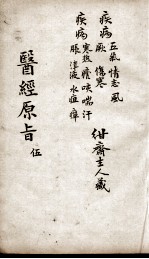 疾病 五氣 情志 風
厥 傷寒
疾病 寒熱 瘧 咳 喘 汗
脹 津液 水 疸 痺
紺齋主人藏
醫經原旨 伍